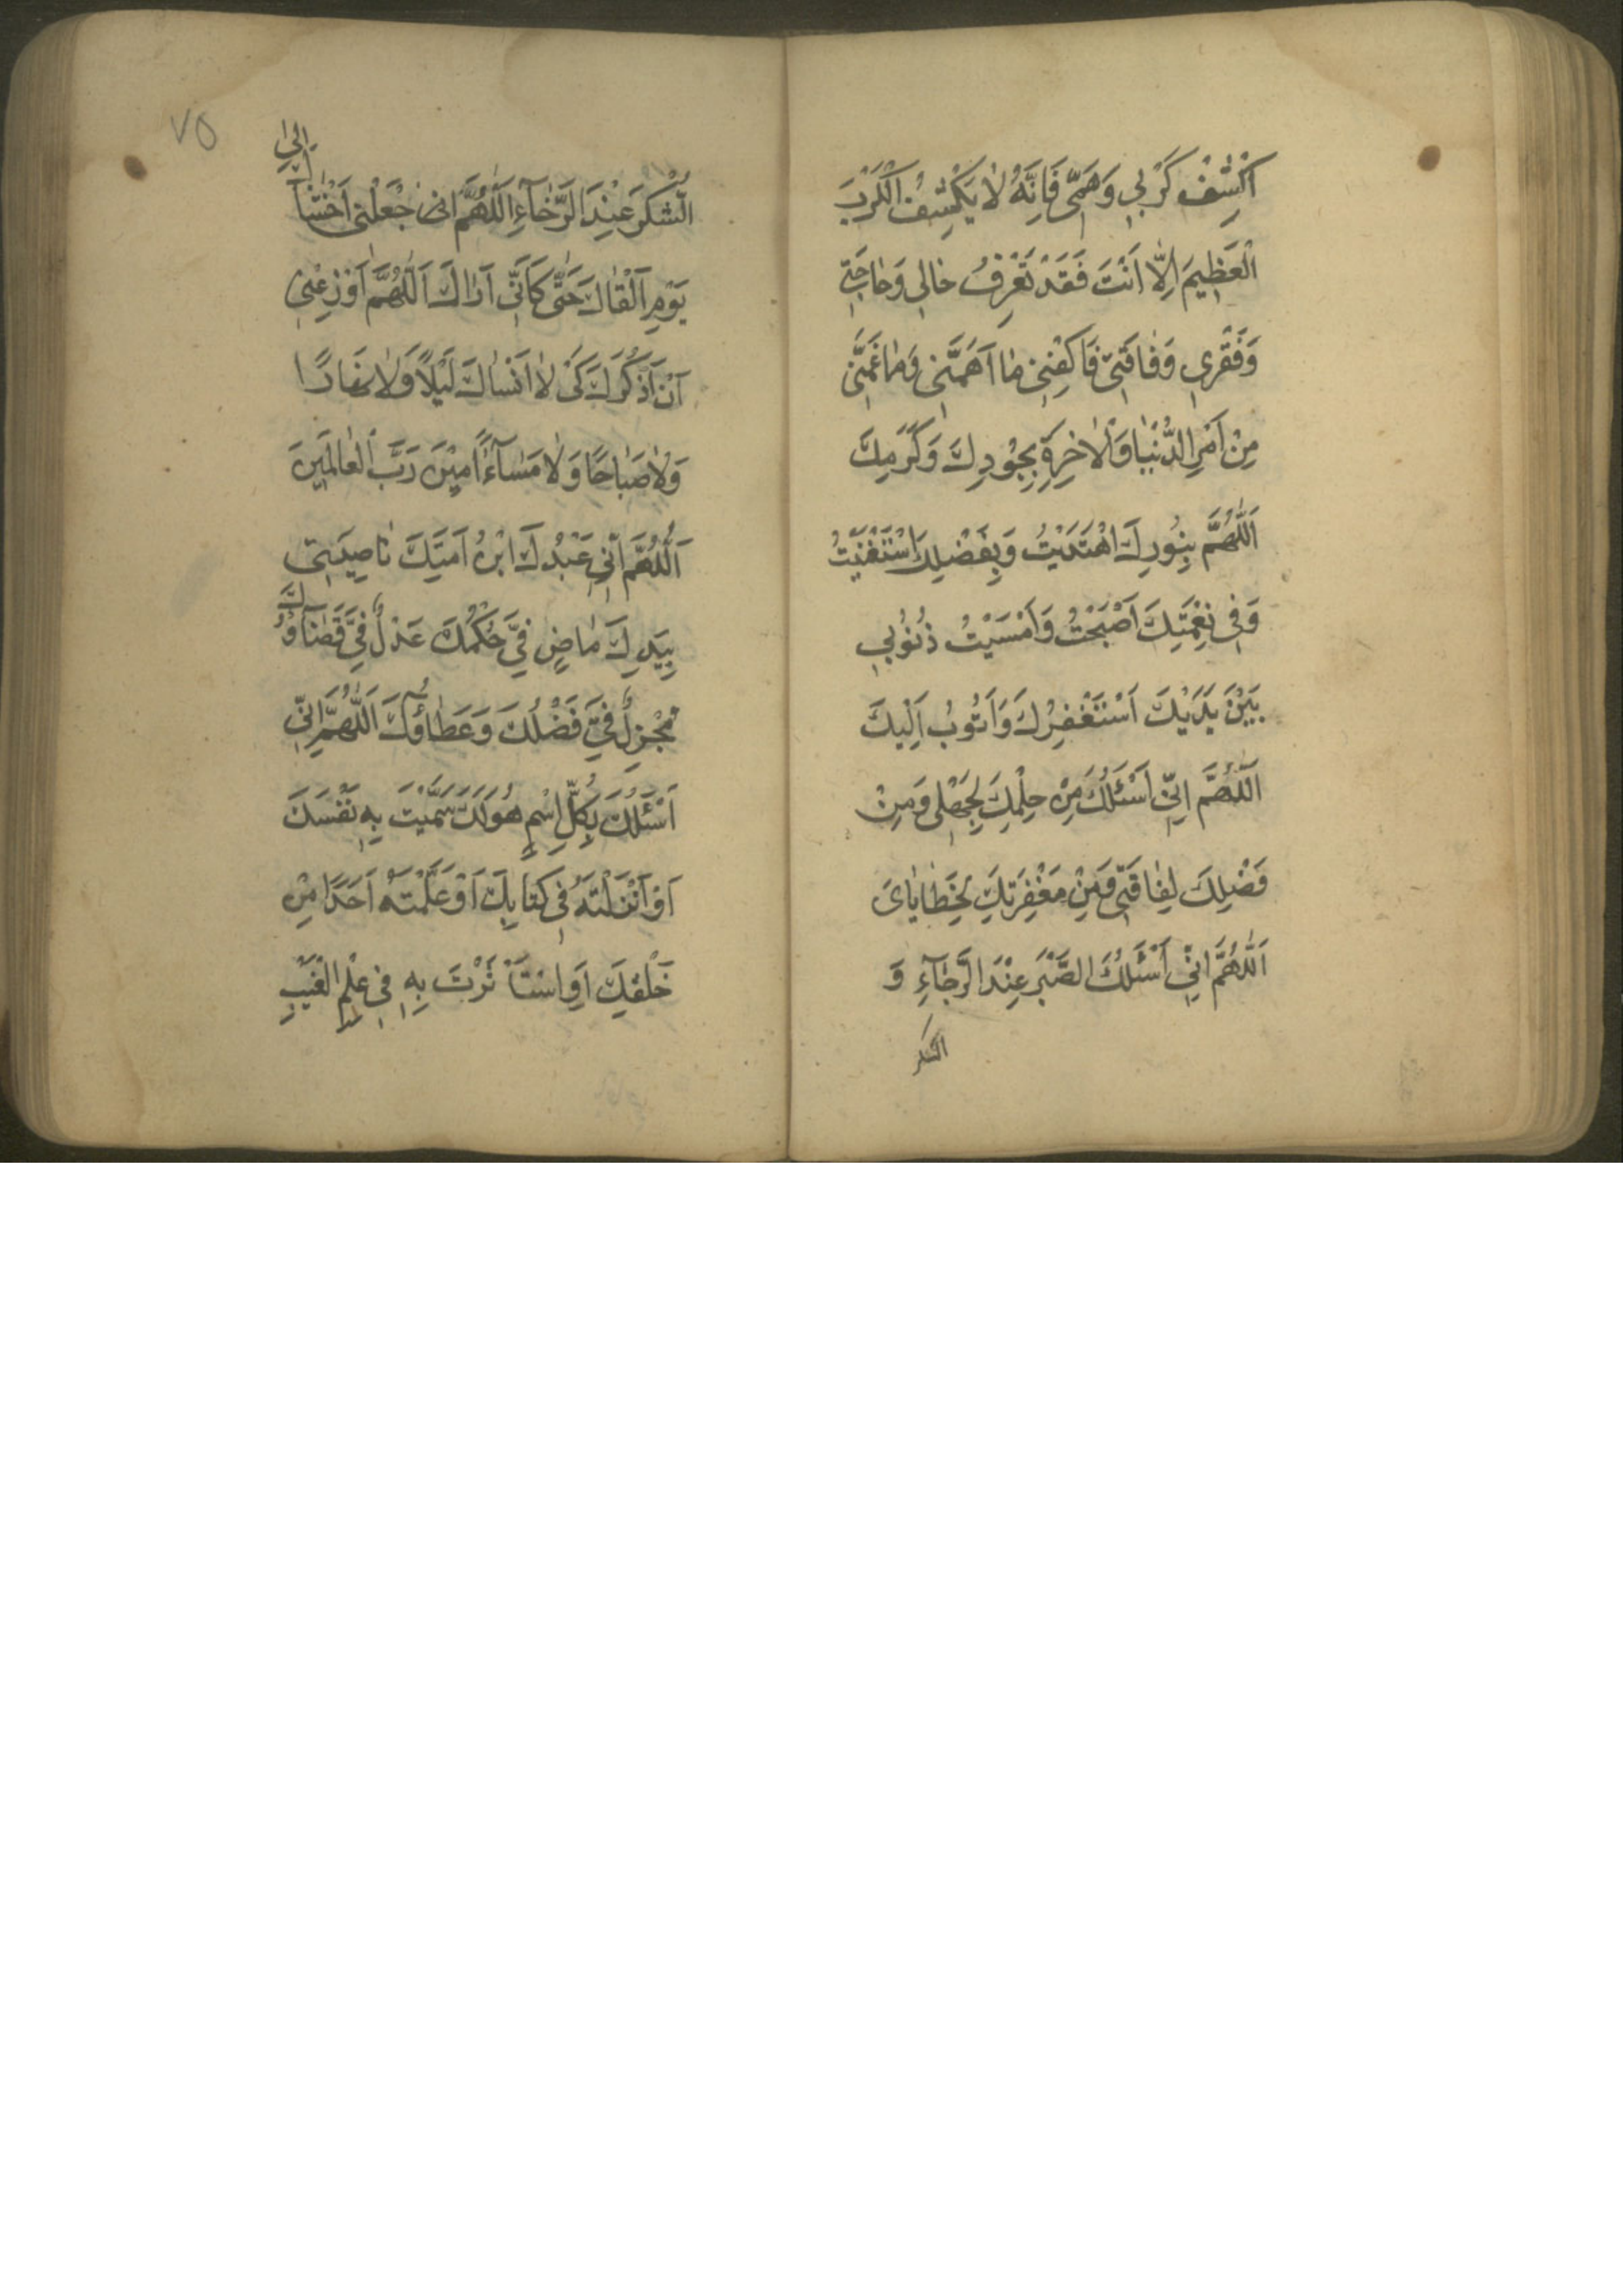 اَكْشِفْ كَرْبِي وَهَمِّي فَاِنَّهُ لاٰ يَكْشِفُ الْكَرْبَ
الْعَظِيمَ اِلّٰا اَنْتَ فَقَدْ تَعْرِفُ حٰالِي وَحٰاجَتِي
وَفَقْرِي وَفٰاقَتِي فَاكْفِنِي مٰا اَهَمَّنِي وَمٰا غَمَّنِي
مِنْ اَمْرِ الدُّنْيٰا وَالْاٰخِرَةِ بِجُوْدِكَ وَكَرَمِكَ
اَللّٰهُمَّ بِنُورِكَ اهْتَدَيْتُ وَبِفَضْلِكَ اسْتَغْنَيْتُ
وَفِي نِعْمَتِكَ اَصْبَحْتُ وَاَمْسَيْتُ ذُنُوبِي
بَيْنَ يَدَيْكَ اَسْتَغْفِرُكَ وَاَتُوبُ اِلَيْكَ
اَللّٰهُمَّ اِنِّي اَسْئَلُكَ مِنْ حِلْمِكَ لِجَهْلِي وَمِنْ
فَضْلِكَ لِفٰاقَتِي وَمِنْ مَغْفِرَتِكَ لِخَطٰايٰايَ
اَللّٰهُمَّ اِنِّي اَسْئَلُكَ الصَّبْرَ عِنْدَ الرَّجٰآءِ وَ
الشكر
٧٥
الشُّكْرَ عِنْدَ الرَّخٰآءِ اَللّٰهُمَّ اِنِّي جْعَلْنِي اَخْشٰا
اِلىٰ
يَوْمِ اَلْقٰاكَ حَتّٰى كَاَنِّي اَرٰاكَ اَللّٰهُمَّ اَوْزِعْنِي
اَنْ اَذْكُرَكَ كَىْ لاٰ اَنْسٰاكَ لَيْلاً وَلاٰ نَهٰارًا
وَلاٰ صَبٰاحًا وَلاٰ مَسٰآءً اٰمِيْنَ رَبَّ الْعٰالَمِينَ
اَللّٰهُمَّ اِنِّي عَبْدُكَ ابْنُ اَمَتِكَ نٰاصِيَتِي
بِيَدِكَ مٰاضٍ فِيَّ حُكْمُكَ عَدْلٌ فِيَّ قَضٰآؤُكَ
مُجْزِلٌ فِيَّ فَضْلُكَ وَعَطٰآؤُكَ اَللّٰهُمَّ اِنِّي
اَسْئَلُكَ بِكُلِّ اِسْمٍ هُوَ لَكَ سَمَّيْتَ بِهِ نَفْسَكَ
اَوْ اَنْزَلْتَهُ فِي كِتٰابِكَ اَوْ عَلَّمْتَهُ اَحَدًا مِنْ
خَلْقِكَ اَوِ اسْتَأْثَرْتَ بِهِ فِي عِلْمِ الْغَيْبِ